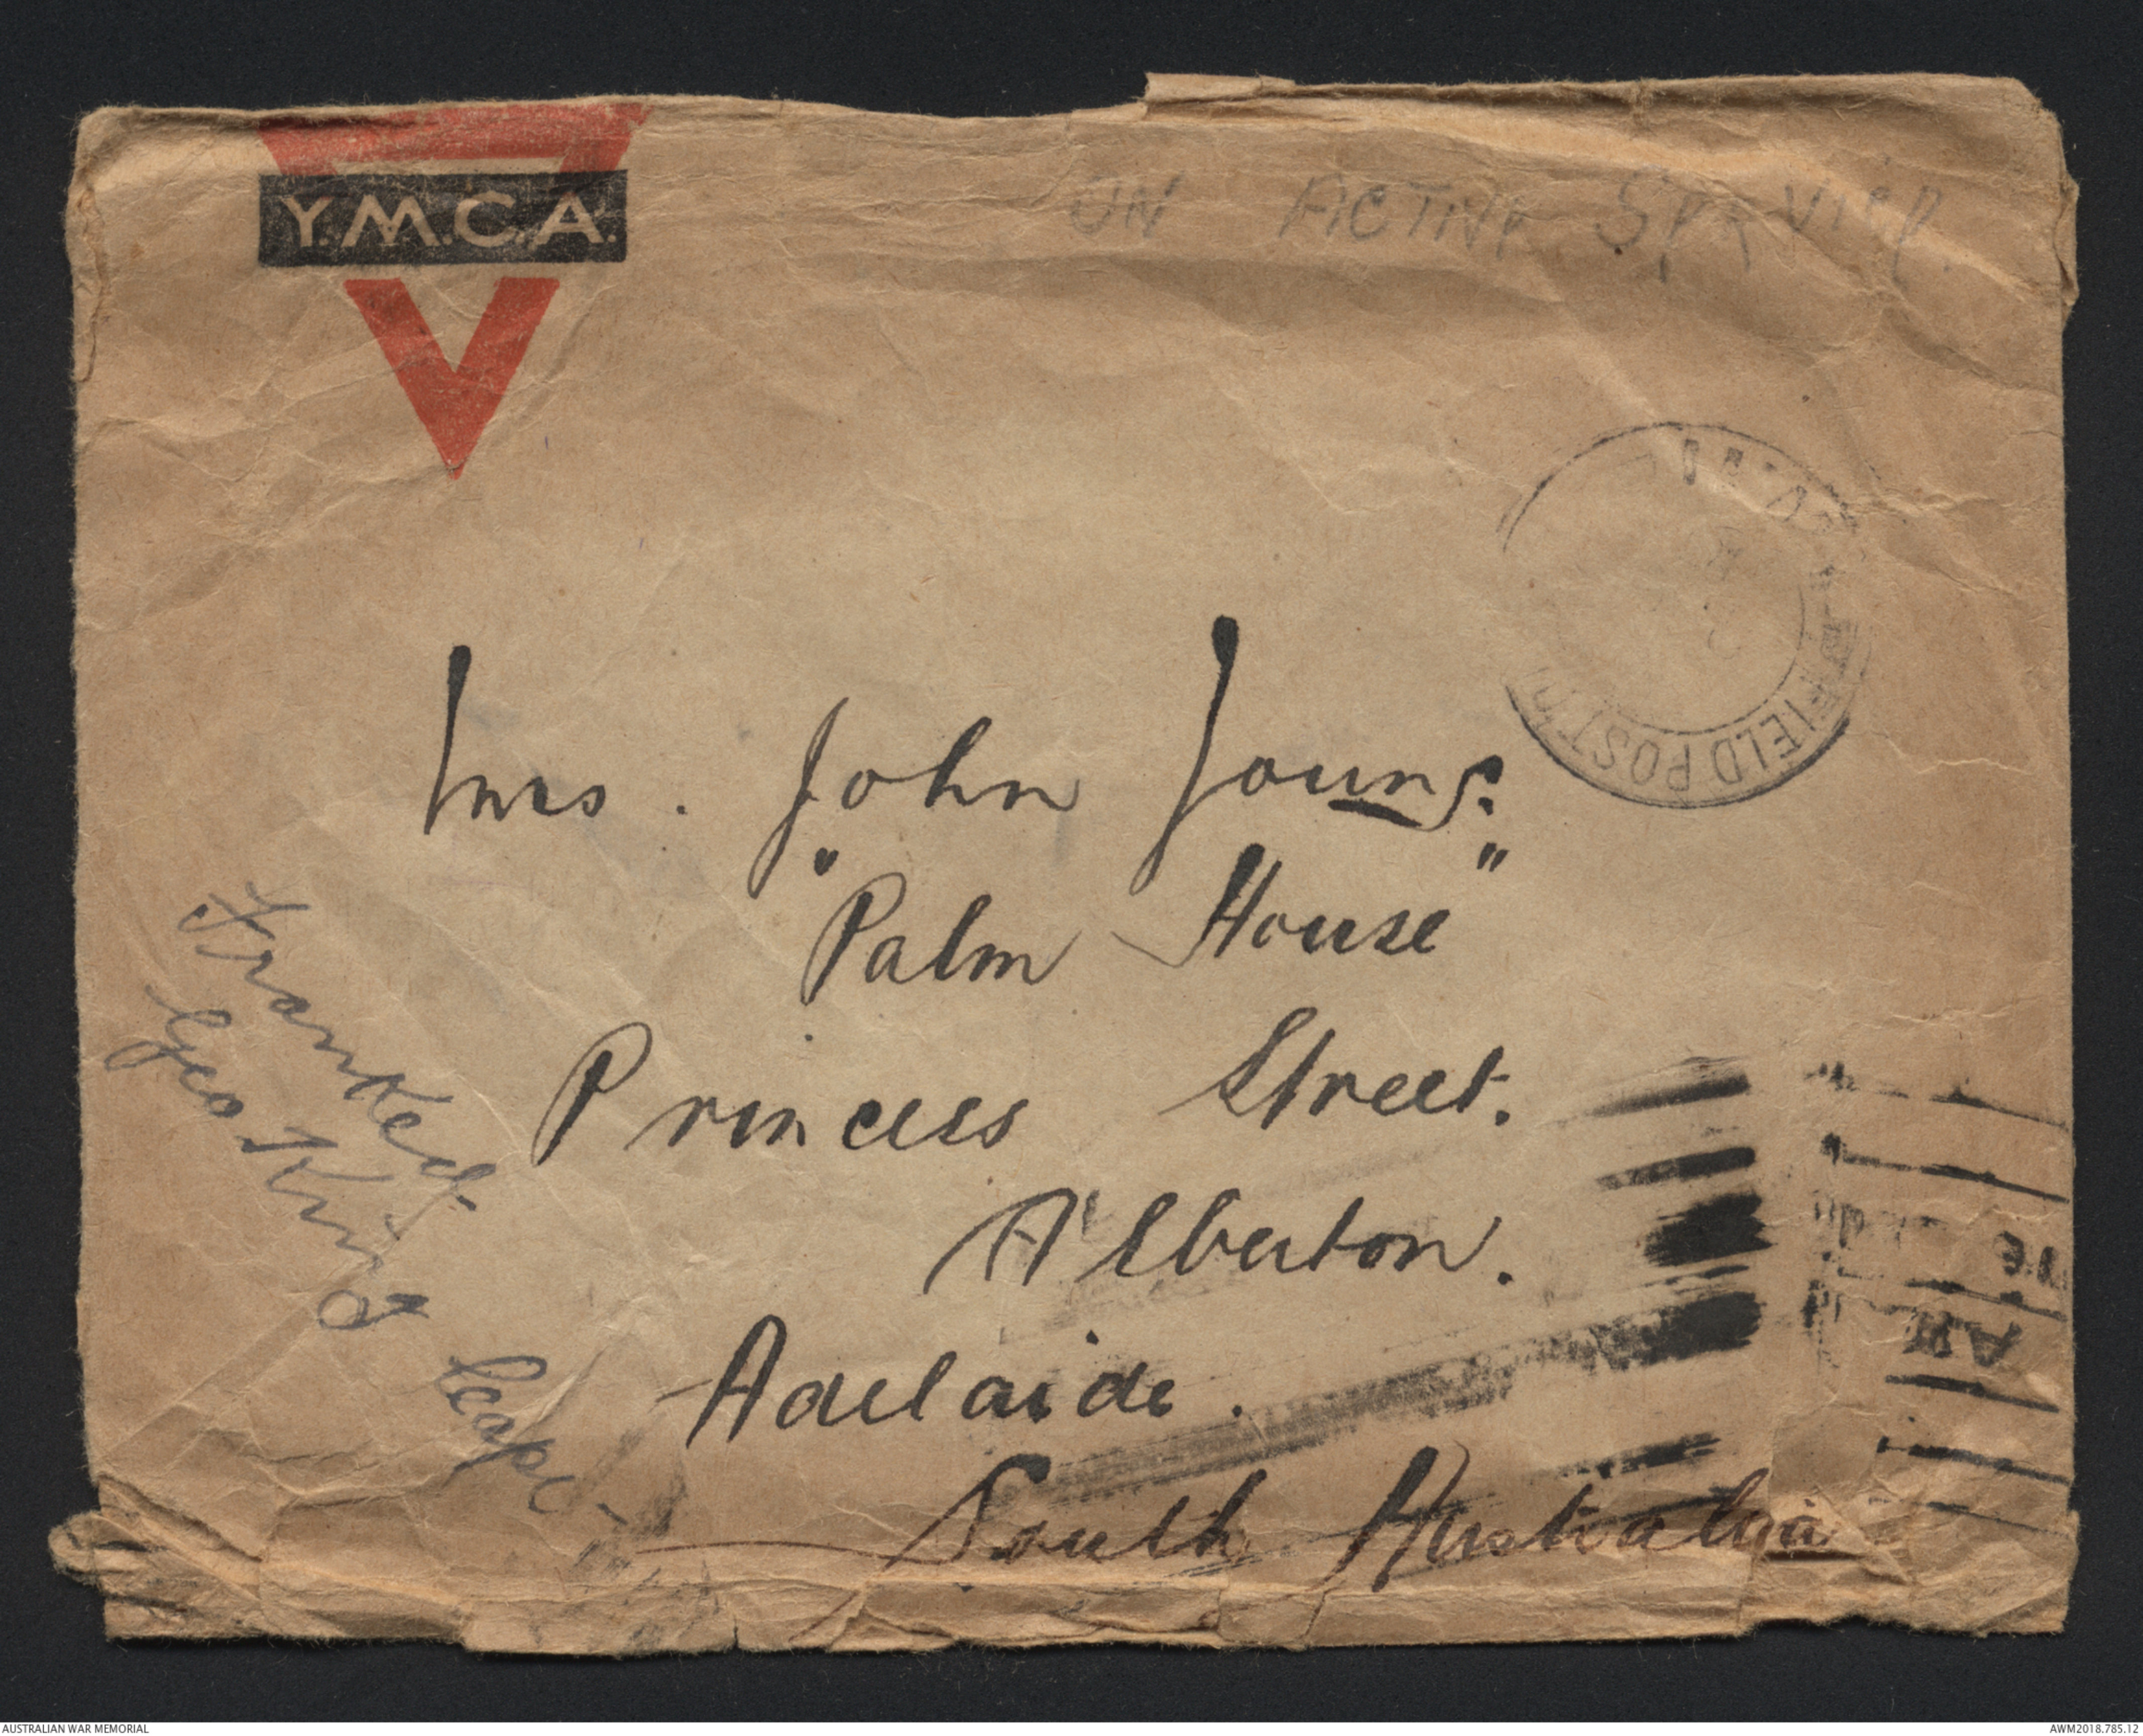 Y.M.C.A.
ON ACTIVE SERVICE.
FIELD POST O
Mrs. John Young.
"Palm House"
Princess Street.
Alberton.
Adelaide.
South Australia
Franked
Geo. King
Capt
AUSTRALIAN WAR MEMORIAL
AWM2018.785.12